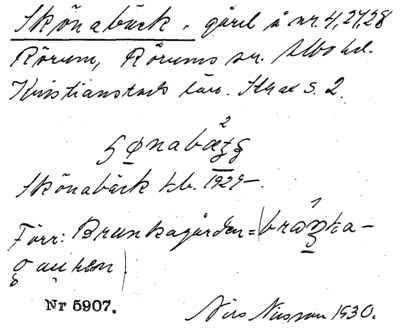 Skönabäck. gård å nr 4, 27, 28
Rörum, Rörums sn. Albo hd.
Kristianstads län. s. 2.
2
Skönabäck 1929–.
Förr: Brunkagården =
Nr 5907. Nils Nilsson 1930.